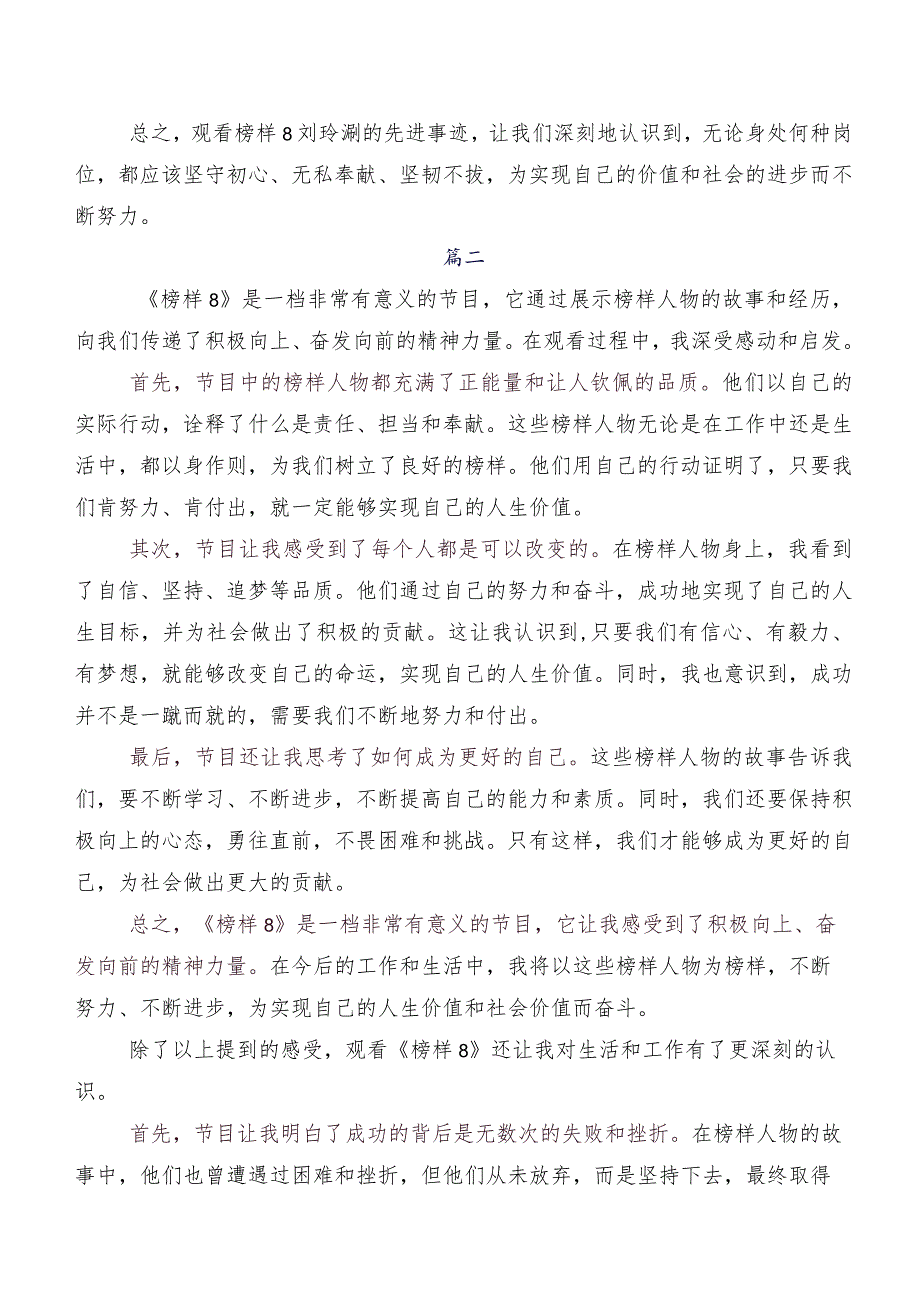 总之，观看榜样8刘玲涮的先进事迹，让我们深刻地认识到，无论身处何种岗
位，都应该坚守初心、无私奉献、坚韧不拔，为实现自己的价值和社会的进步而不
断努力。
篇二
《榜样8》是一档非常有意义的节目，它通过展示榜样人物的故事和经历，
向我们传递了积极向上、奋发向前的精神力量。在观看过程中，我深受感动和启发。
首先，节目中的榜样人物都充满了正能量和让人钦佩的品质。他们以自己的
实际行动，诠释了什么是责任、担当和奉献。这些榜样人物无论是在工作中还是生
活中，都以身作则，为我们树立了良好的榜样。他们用自己的行动证明了，只要我
们肯努力、肯付出，就一定能够实现自己的人生价值。
其次，节目让我感受到了每个人都是可以改变的。在榜样人物身上，我看到
了自信、坚持、追梦等品质。他们通过自己的努力和奋斗，成功地实现了自己的人
生目标，并为社会做出了积极的贡献。这让我认识到,只要我们有信心、有毅力、
有梦想，就能够改变自己的命运，实现自己的人生价值。同时，我也意识到，成功
并不是一蹴而就的，需要我们不断地努力和付出。
最后，节目还让我思考了如何成为更好的自己。这些榜样人物的故事告诉我
们，要不断学习、不断进步，不断提高自己的能力和素质。同时，我们还要保持积
极向上的心态，勇往直前，不畏困难和挑战。只有这样，我们才能够成为更好的自
己，为社会做出更大的贡献。
总之，《榜样8》是一档非常有意义的节目，它让我感受到了积极向上、奋
发向前的精神力量。在今后的工作和生活中，我将以这些榜样人物为榜样，不断
努力、不断进步，为实现自己的人生价值和社会价值而奋斗。
除了以上提到的感受，观看《榜样8》还让我对生活和工作有了更深刻的认
识。
首先，节目让我明白了成功的背后是无数次的失败和挫折。在榜样人物的故
事中，他们也曾遭遇过困难和挫折，但他们从未放弃，而是坚持下去，最终取得